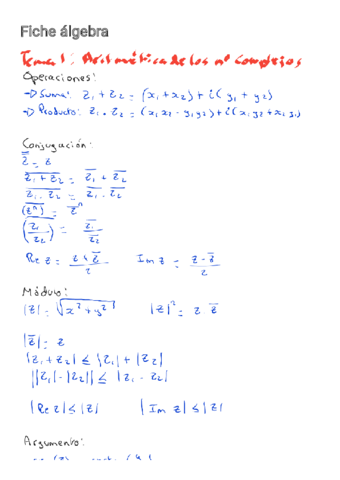 Fiche álgebra
Tema 1: Aritmética de los nº complejos
Operaciones:
→ Suma: z₁ + z₂ = (x₁ + x₂) + i(y₁ + y₂)
→ Producto: z₁ · z₂ = (x₁x₂ - y₁y₂) + i(x₁y₂ + x₂y₁)
Conjugación:
z̿ = z
\overline{z₁ + z₂} = \overline{z₁} + \overline{z₂}
\overline{z₁ · z₂} = \overline{z₁} · \overline{z₂}
\overline{(zⁿ)} = \overline{z}ⁿ
\overline{(z₁/z₂)} = \overline{z₁}/\overline{z₂}
Re z = (z + \overline{z})/2 Im z = (z - \overline{z})/2
Módulo:
|z| = √(x² + y²) |z|² = z \overline{z}
|\overline{z}| = z
|z₁ + z₂| ≤ |z₁| + |z₂|
||z₁| - |z₂|| ≤ |z₁ - z₂|
|Re z| ≤ |z| |Im z| ≤ |z|
Argumento: